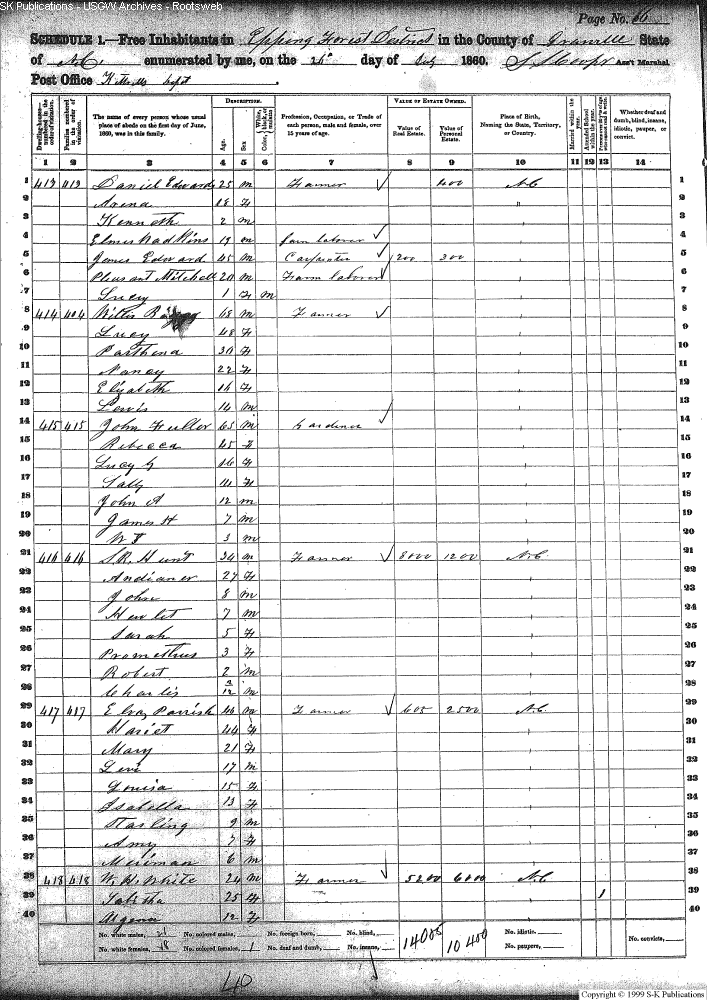 SK Publications - USGW Archives - Rootsweb
Page No. 66
SCHEDULE 1.—Free Inhabitants in Epping Forest District in the County of Granville State
of N.C. enumerated by me, on the day of July 1860. Ass't Marshal
Post Office
Dwelling-houses—numbered in the order of visitation. Families numbered in the order of visitation. The name of every person whose usual place of abode on the first day of June, 1860, was in this family. DESCRIPTION. Age. Sex. Color, White, black, or mulatto. Profession, Occupation, or Trade of each person, male and female, over 15 years of age. VALUE OF ESTATE OWNED. Value of Real Estate. Value of Personal Estate. Place of Birth, Naming the State, Territory, or Country. Married within the year. Attended School within the year. Persons over 20 y'rs of age who cannot read & write. Whether deaf and dumb, blind, insane, idiotic, pauper, or convict.
1 2 3 4 5 6 7 8 9 10 11 12 13 14
1 413 413 Daniel Edwards 25 m Farmer 400 N.C 1
2 18 F " 2
3 Kenneth 2 m 3
4 19 m farm laborer 4
5 James Edward 45 m Carpenter 200 300 5
6 Pleasant Mitchell 20 m Farm laborer 6
7 Lucy 1 F m 7
8 414 414 Willis 68 m Farmer 8
9 Lucy 48 F 9
10 Parthena 30 F 10
11 Nancy 22 F 11
12 Elizabeth 16 F 12
13 Lewis 14 m 13
14 415 415 John Fuller 65 m Gardener 14
15 Rebecca 45 F 15
16 Lucy G 16 F 16
17 Sally 14 F 17
18 John A 12 m 18
19 James H 7 m 19
20 W J 3 m 20
21 416 416 S.R. Hunt 34 m Farmer 8000 1200 N.C. 21
22 27 F 22
23 John 8 m 23
24 7 m 24
25 Sarah 5 F 25
26 Promethus 3 F 26
27 Robert 2 m 27
28 Charles 2/12 m 28
29 417 417 Parrish 46 m Farmer 605 2500 N.C. 29
30 Hariet 44 F 30
31 Mary 21 F 31
32 Levi 17 m 32
33 Louisa 15 F 33
34 Isabella 13 F 34
35 Starling 9 m 35
36 Amy 7 F 36
37 Meriman 6 m 37
38 418 418 W. H. White 24 m Farmer 5200 6000 N.C. 38
39 Tabitha 25 F 1 39
40 12 F 40
No. white males, 21 No. colored males, No. foreign born, No. blind, 14005 10400 No. idiotic, No. convicts,
No. white females, 18 No. colored females, 1 No. deaf and dumb, No. insane, No. paupers,
40
Copyright © 1999 S-K Publications